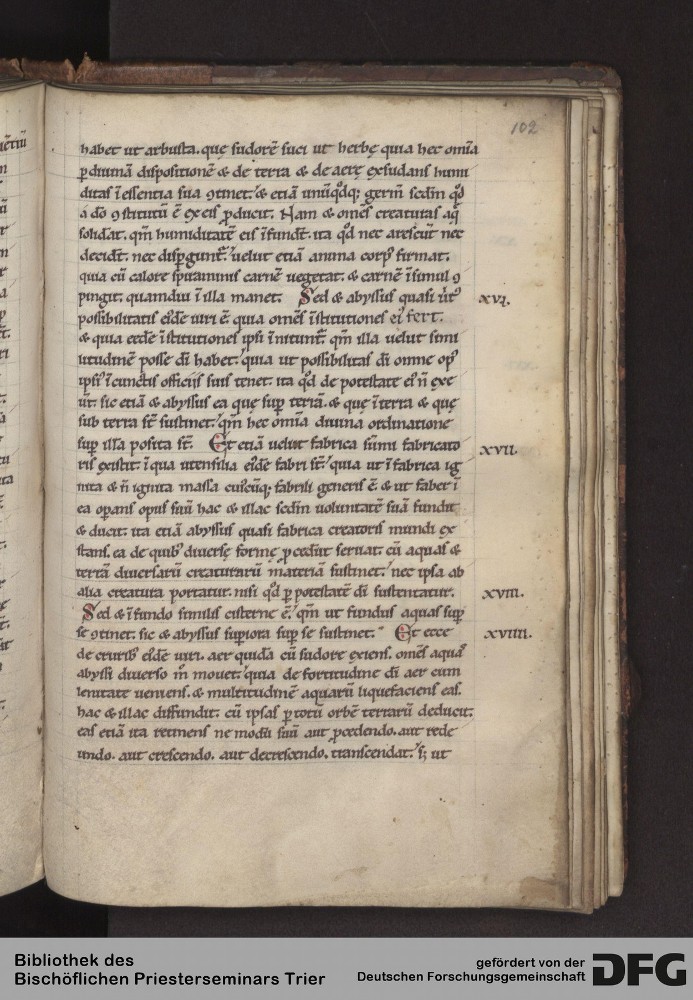 102
habet ut arbusta. quę sudorē suci ut herbę quia hec om̄ia
ꝑ diuinā dispositionē & de terra & de aerę exsudans humi
ditas ī essentia sua ꝯtinet. & etiā unūqͦdqꝫ germ̄ scdm̄ qͦd
a dō ꝯstitutū ē ex eis ꝓducit. Nam & om̄es creaturas aq̄
solidat. qm̄ humiditatē eis īfundit. ita qͦd nec arescūt nec
decidūt. nec disꝑgunt᷑. uelut etiā anima corpꝰ firmat.
quia cū calore spiraminis carnē uegetat. & carnē ī simul ꝯ
pingit. quamdiu ī illa manet. Sed & abyssus quasi uirtꝰ
xvi.
possibilitatis eīdē uiri ē. quia om̄es īstitutiones ei fert.
& quia eedē īstitutiones ipsi īnitunt᷑. qm̄ illa uelut simi
litudinē posse dī habet. quia ut possibilitas dī omne opꝰ
ipsiꝰ ī cunctis officiis suis tenet. ita qͦd de potestate eiꝰ n̄ exe
unt. sic etiā & abyssus ea que suꝑ terrā. & quę ī terra & quę
sub terra st̄ sustinet. qm̄ hec om̄ia diuina ordinatione
suꝑ illa posita st̄. Et etiā uelut fabrica sūmi fabricato
xvii.
ris existit. ī qua utensilia eīdē fabri st̄. quia ut ī fabrica ig
nita & n̄ ignita massa cuiꝰcūqꝫ fabrilis generis ē. & ut faber ī
ea operans opus suū hac & illac scdm̄ uoluntatē suā fundit
& ducit. ita etiā abyssus quasi fabrica creatoris mundi ex
stans. ea de quibꝰ diuerse formę ꝓcedunt seruat. cū aquas &
terrā diuersarū creaturarū materiā sustinet. nec ipsa ab
alia creatura portatur. nisi qͦd ꝑ potestatē dī sustentatur.
xviii.
Sed & ī fundo similis cisterne ē. qm̄ ut fundus aquas suꝑ
se ꝯtinet. sic & abyssus suꝑiora suꝑ se sustinet. Et ecce
xviiii.
de cruribꝰ eīdē uiri. aer quidā cū sudore exiens. om̄es aquas
abyssi diuerso m̄ mouet. quia de fortitudine dī aer cum
lenitate ueniens. & multitudinē aquarū liquefaciens eas.
hac & illac diffundit. cū ipsas ꝑ totū orbē terrarū deducit.
eas etiā ita retinens ne modū suū aut ꝓcedendo. aut rede
undo. aut crescendo. aut decrescendo. transcendat. sꝫ ut
Bibliothek des
Bischöflichen Priesterseminars Trier
gefördert von der
Deutschen Forschungsgemeinschaft
DFG